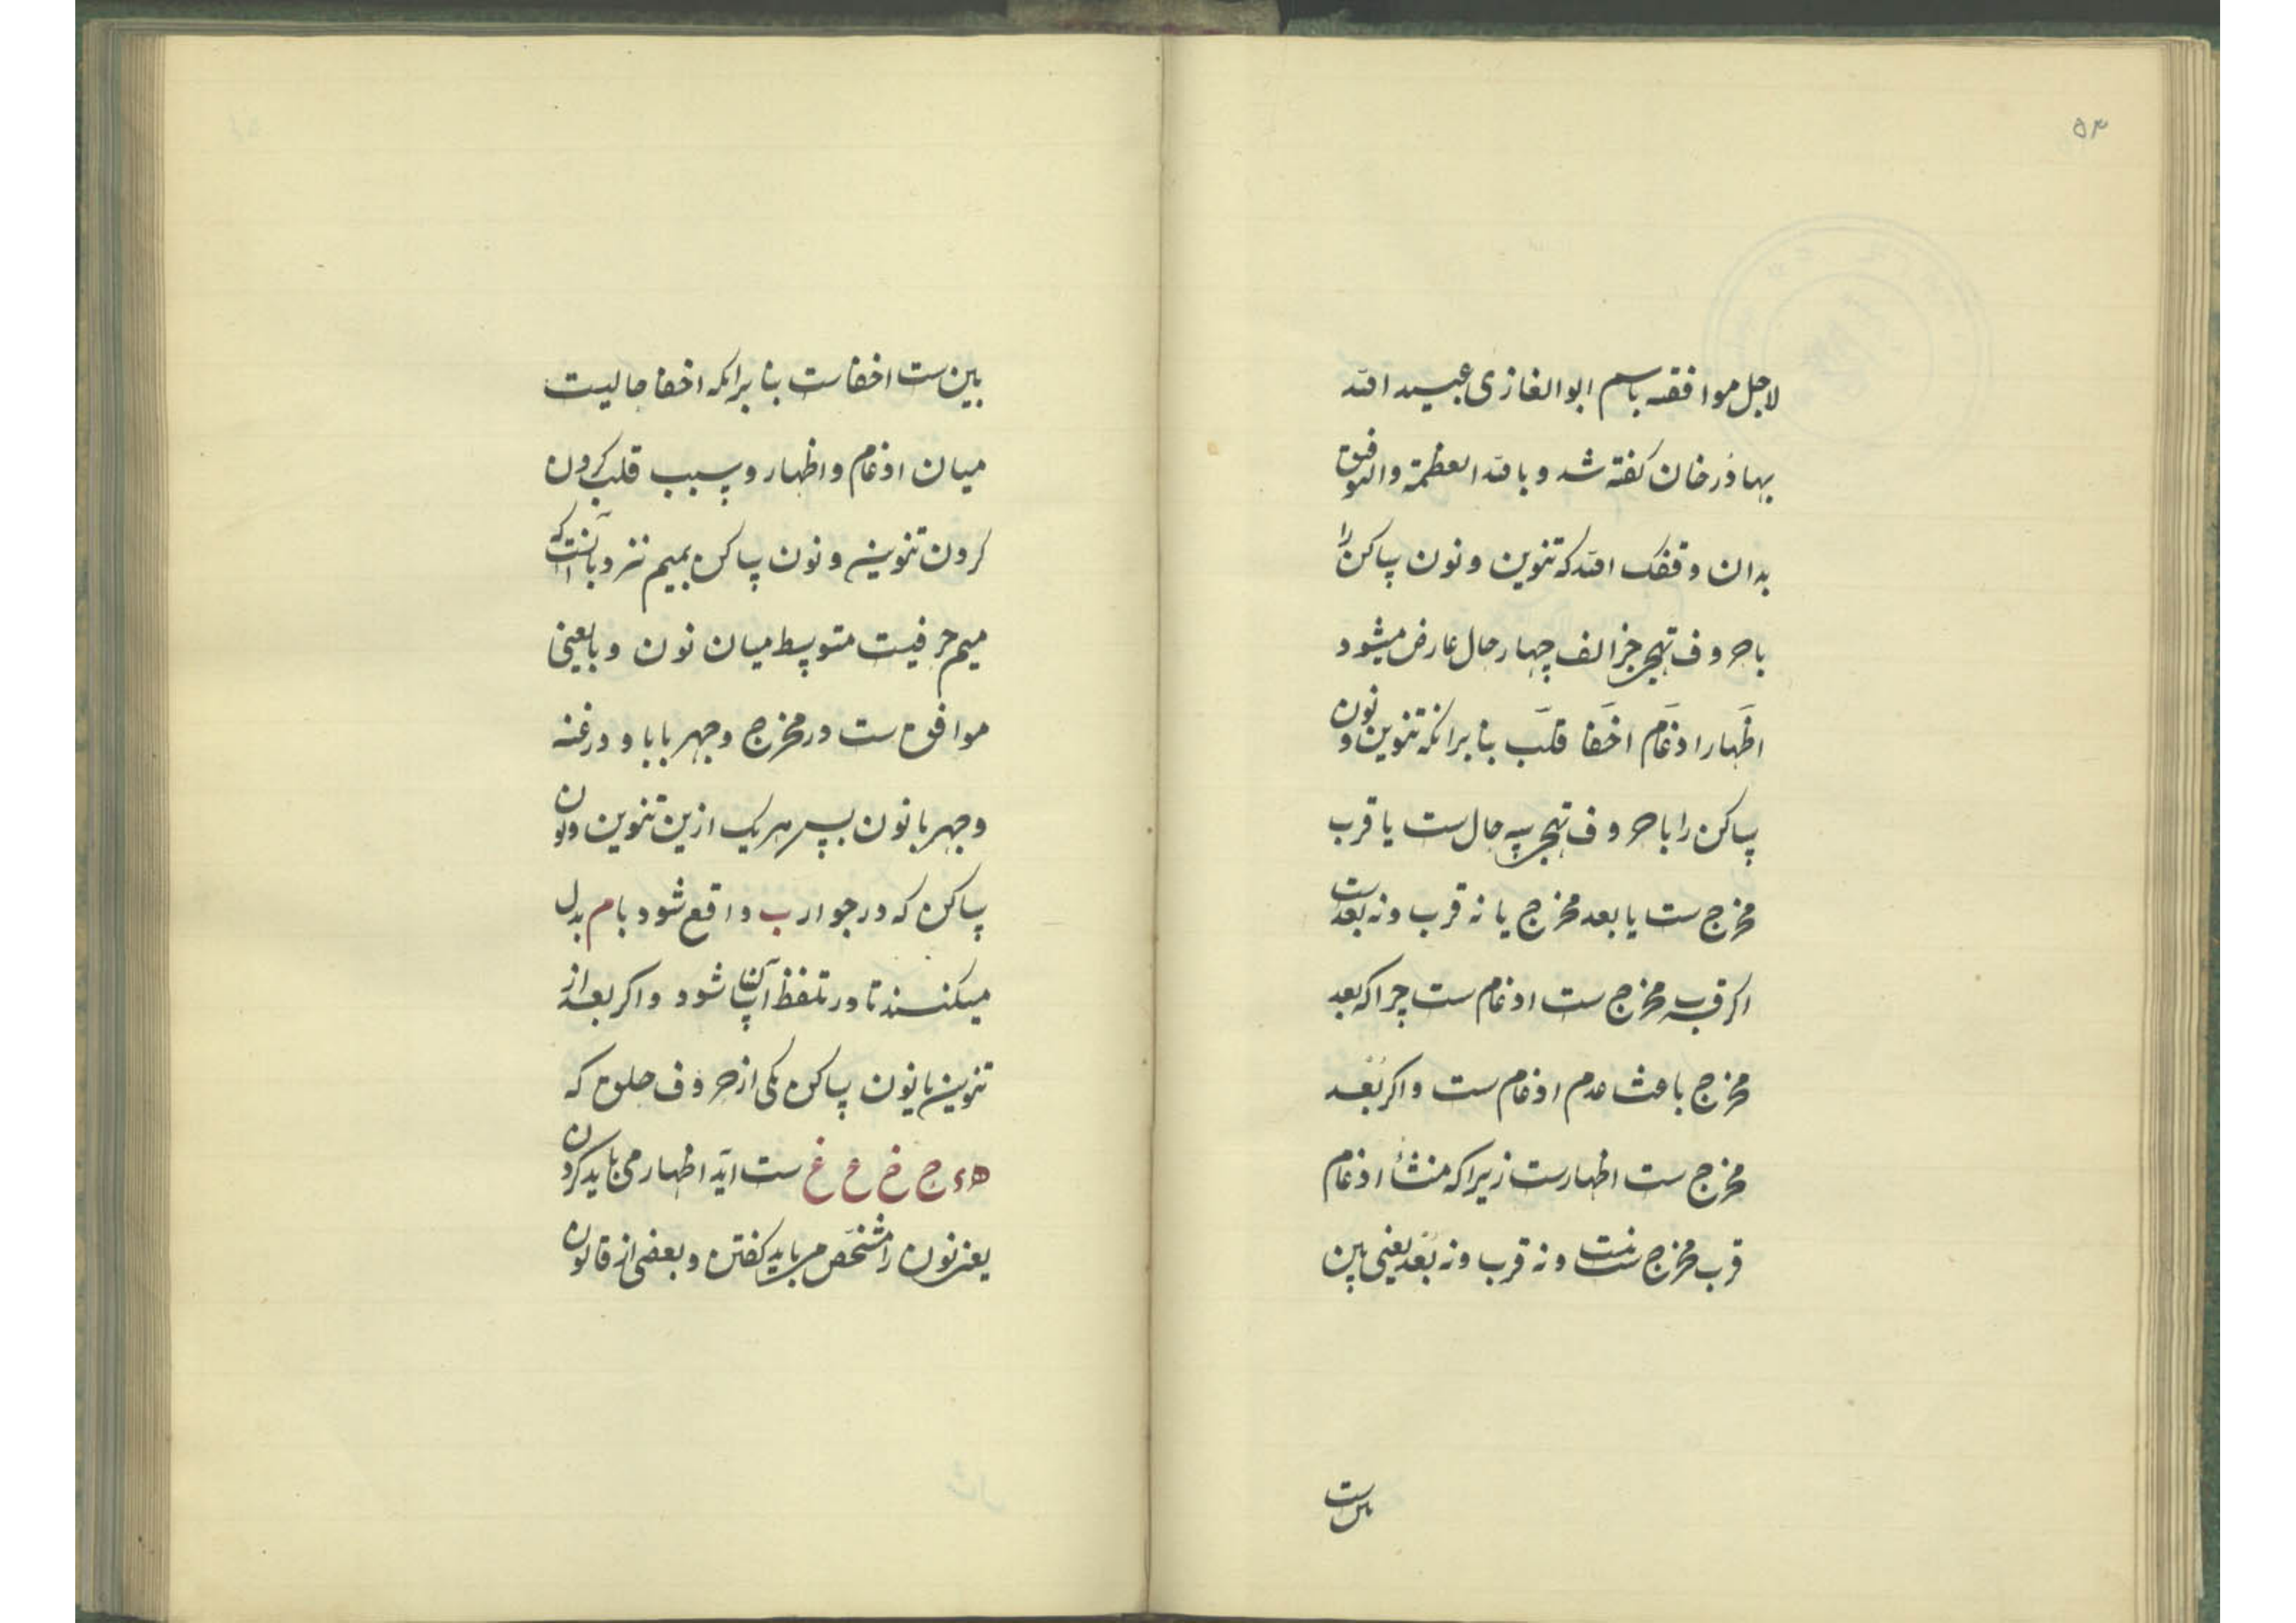 ۵۳
لاجل موافقه باسم ابوالغازی عبید الله
بهادرخان کفته شد و بالله العظمة والتوفیق
بدان وفقک الله که تنوین و نون ساکن را
با حروف تهجی جز الف چهار حال عارض میشود
اظهار ادغام اخفا قلب بنا بر انکه تنوین و نون
ساکن را با حروف تهجی سه حال ست یا قرب
مخرج ست یا بعد مخرج یا نه قرب و نه بعدست
اکر قرب مخرج ست ادغام ست چرا که بعد
مخرج باعث عدم ادغام ست و اکر بُعد
مخرج ست اظهارست زیرا که منشأ ادغام
قرب مخرج ست و نه قرب و نه بُعد یعنی بین
بین ست
بین ست اخفاست بنا برانکه اخفا حالیست
میان ادغام و اظهار و سبب قلب کردن
کردن تنوین و نون ساکن بمیم نزد با آنست که
میم حرفیست متوسط میان نون و با یعنی
موافق ست در مخرج و جهر با با و در غنه
و جهر با نون پس هر یک ازین تنوین و نون
ساکن که در جوار ب واقع شود با م بدل
میکنند تا در تلفظ آسان شود و اکر بعد از
تنوین یا نون ساکن یکی از حروف حلق که
ه ء ح خ ع غ ست آید اظهار می باید کردن
یعنی نون را مشخص می باید کفتن و بعضی از قانون